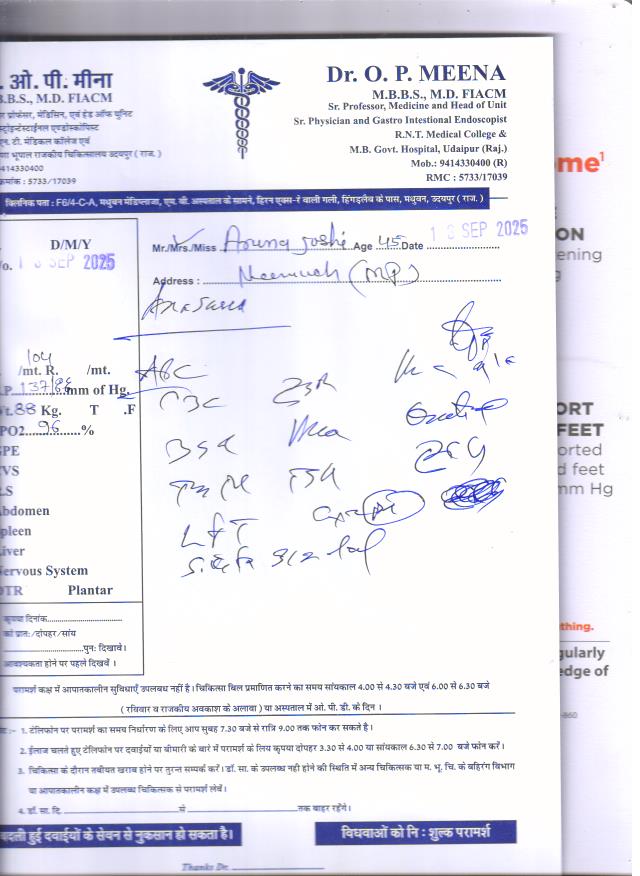 . ओ. पी. मीना
.B.B.S., M.D. FIACM
र प्रोफेसर, मेडिसिन, एवं हेड ऑफ यूनिट
स्ट्रोइन्टेस्टाईनल एण्डोस्कोपिस्ट
एन. टी. मेडिकल कॉलेज एवं
णा भूपाल राजकीय चिकित्सालय उदयपुर ( राज. )
9414330400
क्रमांक : 5733/17039
Dr. O. P. MEENA
M.B.B.S., M.D. FIACM
Sr. Professor, Medicine and Head of Unit
Sr. Physician and Gastro Intestional Endoscopist
R.N.T. Medical College &
M.B. Govt. Hospital, Udaipur (Raj.)
Mob.: 9414330400 (R)
RMC : 5733/17039
क्लिनिक पता : F6/4-C-A, मधुबन मेडिप्लाजा, एम. बी. अस्पताल के सामने, हिरन एक्स-रे वाली गली, हिंगड़लैब के पास, मधुवन, उदयपुर ( राज. )
D/M/Y
No. SEP 2025
Mr./Mrs./Miss Aruna Joshi Age 45 Date SEP 2025
Address : Neemuch (MP)
Anasarca
104
/mt. R. /mt.
.P. 137/86 mm of Hg.
t. 88 Kg. T .F
PO2 96 %
PE
VS
.S
bdomen
pleen
iver
ervous System
DTR Plantar
ABG
CBC ESR
BSR Urea
TSH
LFT
ECG
कृपया दिनांक
को प्रातः/दोपहर/सांय
पुनः दिखावें।
आवश्यकता होने पर पहले दिखवें ।
परामर्श कक्ष में आपातकालीन सुविधाएँ उपलब्ध नहीं है। चिकित्सा बिल प्रमाणित करने का समय सांयकाल 4.00 से 4.30 बजे एवं 6.00 से 6.30 बजे
( रविवार व राजकीय अवकाश के अलावा ) या अस्पताल में ओ. पी. डी. के दिन ।
ट :- 1. टेलिफोन पर परामर्श का समय निर्धारण के लिए आप सुबह 7.30 बजे से रात्रि 9.00 तक फोन कर सकते है।
2. ईलाज चलते हुए टेलिफोन पर दवाईयों या बीमारी के बारे में परामर्श के लिय कृपया दोपहर 3.30 से 4.00 या सांयकाल 6.30 से 7.00 बजे फोन करें।
3. चिकित्सा के दौरान तबीयत खराब होने पर तुरन्त सम्पर्क करें। डॉ. सा. के उपलब्ध नही होने की स्थिति में अन्य चिकित्सक या म. भू. चि. के बहिरंग विभाग
या आपातकालीन कक्ष में उपलब्ध चिकित्सक से परामर्श लेवें।
4. डॉ. सा. दि. से तक बाहर रहेंगे।
बदली हुई दवाईयों के सेवन से नुकसान हो सकता है।
विधवाओं को नि : शुल्क परामर्श
Thanks Dr.
ome¹
ON
ening
ORT
FEET
orted
d feet
mm Hg
thing.
gularly
edge of
-860